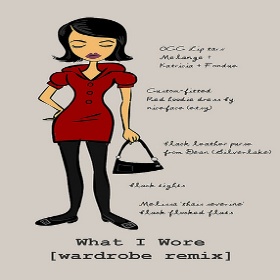 OCC Lip tars
Melange +
Katricia + Fondue
Custom-fitted
Red hoodie dress by
niceface (etsy)
black leather purse
from Dean (Silverlake)
black tights
Melissa
black flocked flats
What I Wore
[wardrobe remix]